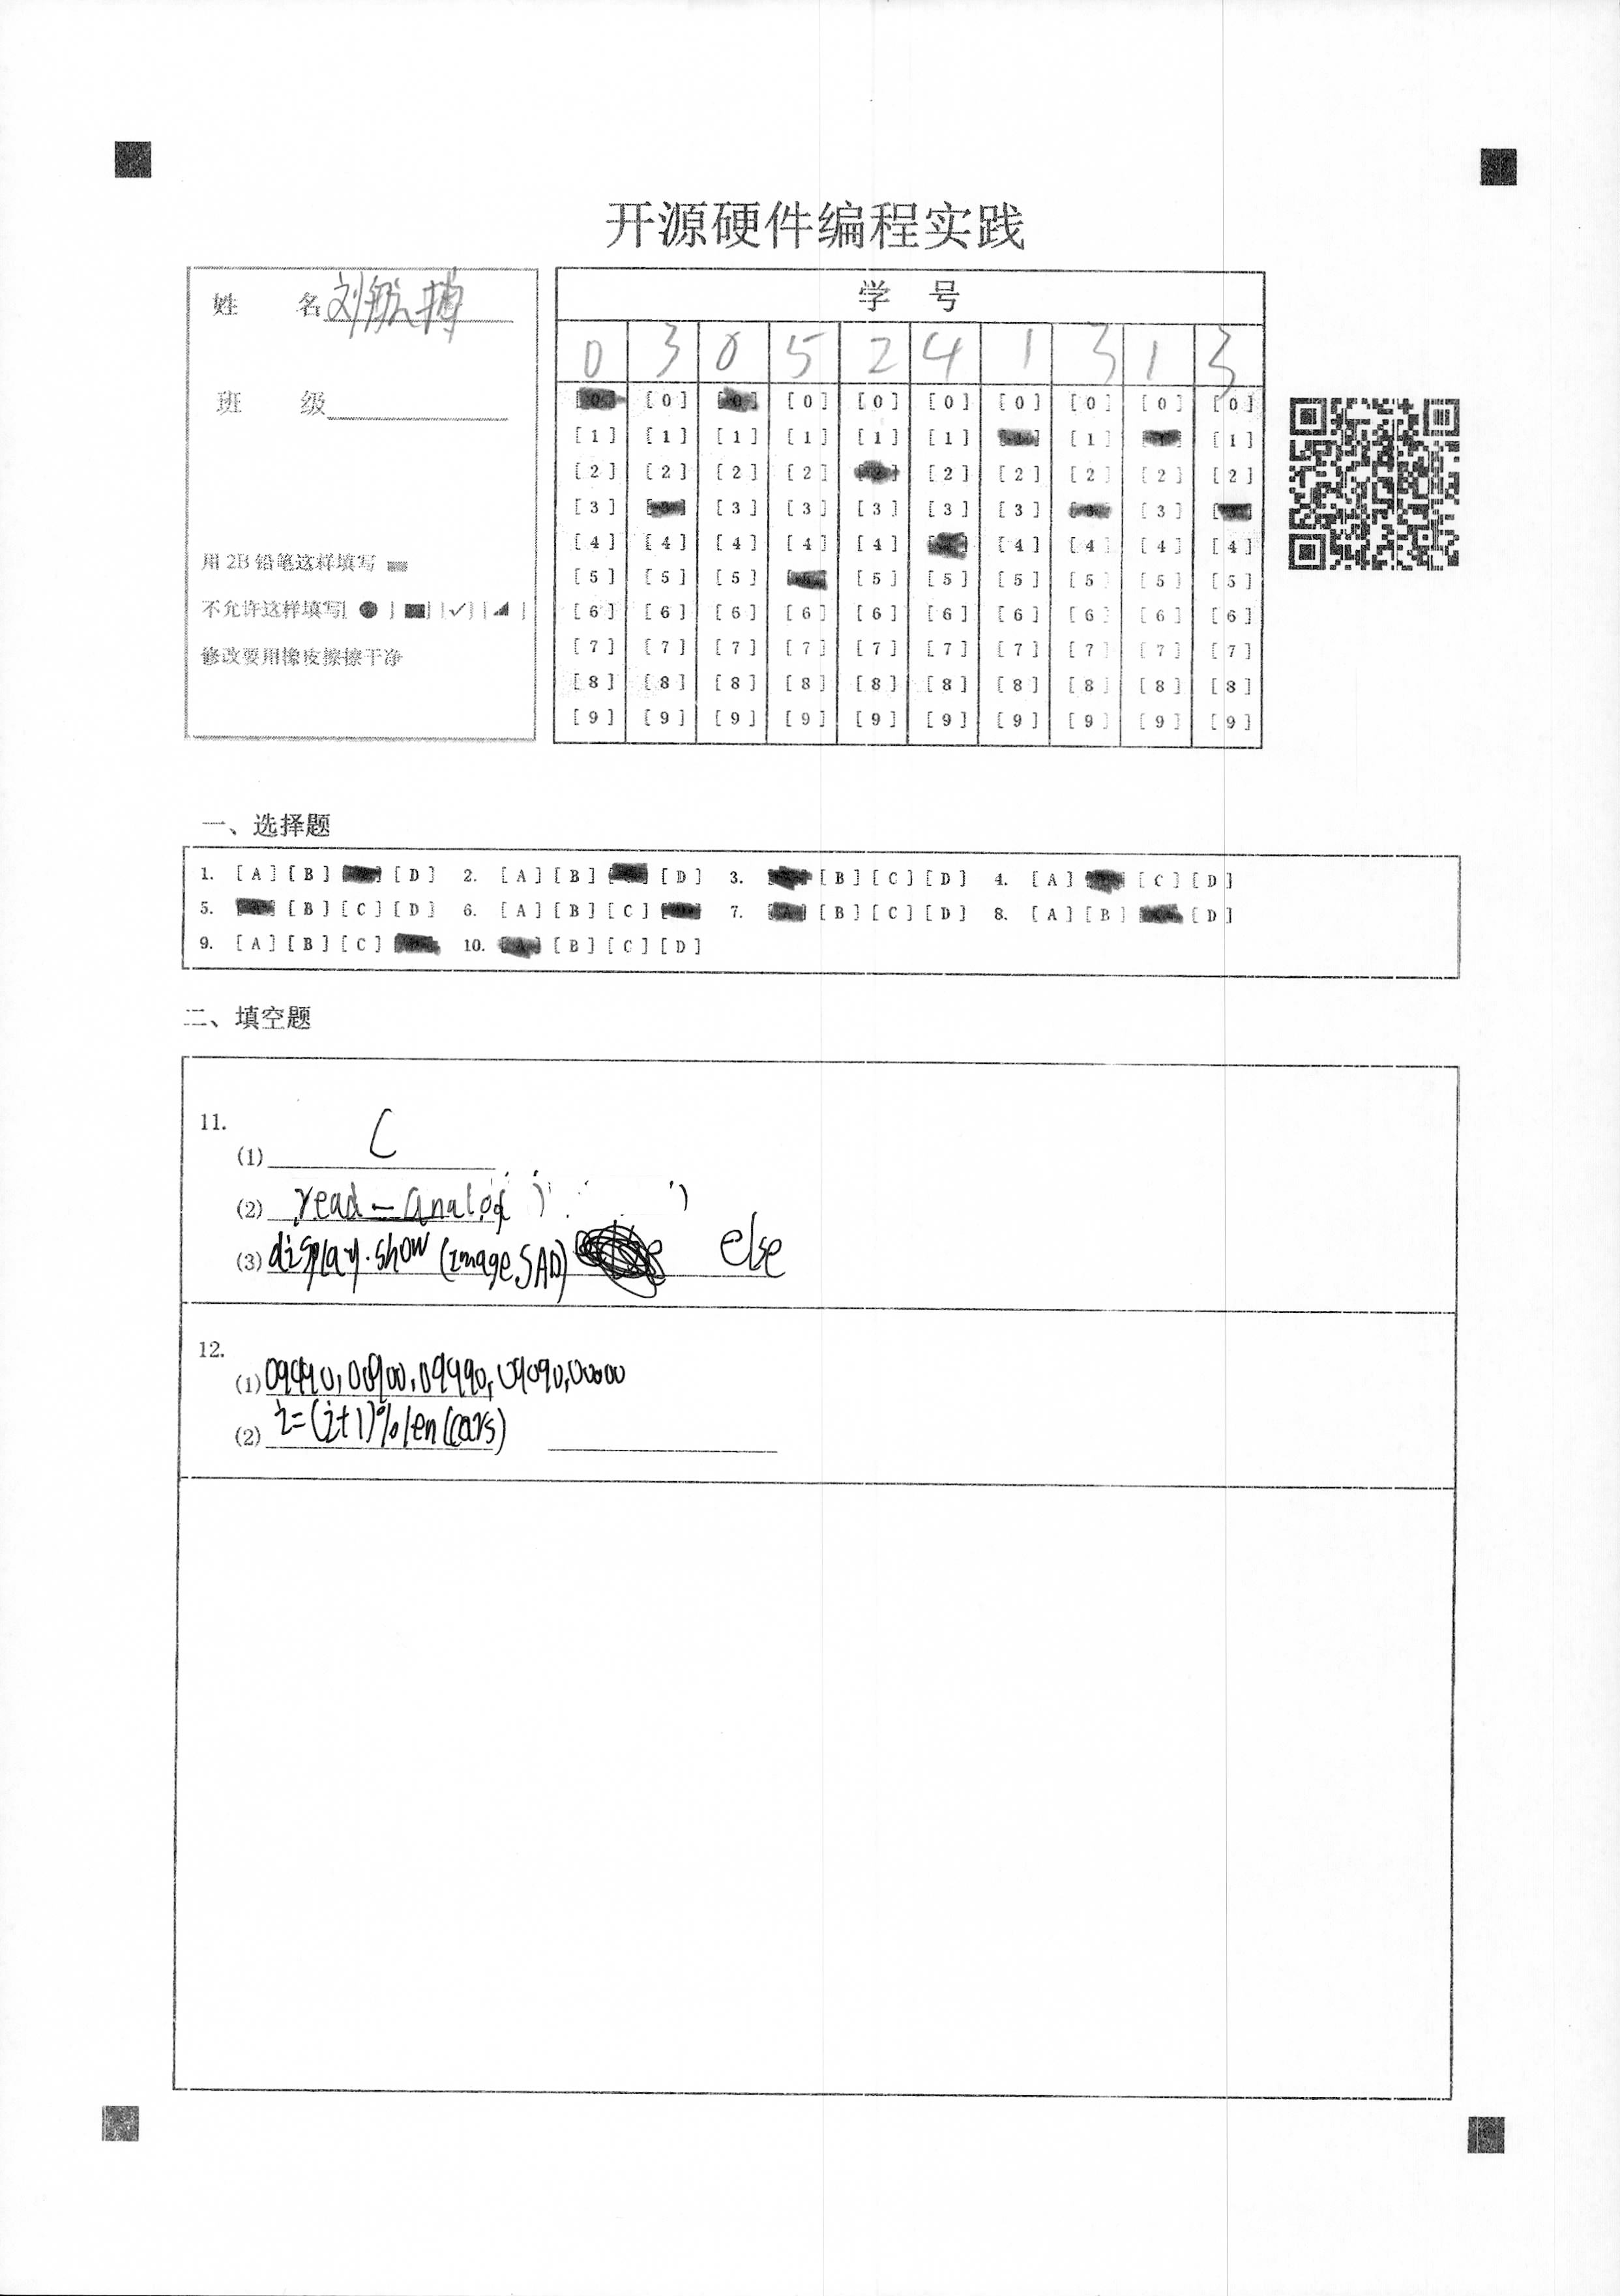 开源硬件编程实践
姓 名 刘航搏
班 级
用 2B 铅笔这样填写
不允许这样填写[ ● ] [■] [✓] [◢ ]
修改要用橡皮擦擦干净
学 号
0 3 0 5 2 4 1 3 1 3
[0] [0] [0] [0] [0] [0] [0] [0]
[1] [1] [1] [1] [1] [1] [1] [1]
[2] [2] [2] [2] [2] [2] [2] [2] [2]
[3] [3] [3] [3] [3] [3] [3]
[4] [4] [4] [4] [4] [4] [4] [4] [4]
[5] [5] [5] [5] [5] [5] [5] [5] [5]
[6] [6] [6] [6] [6] [6] [6] [6] [6] [6]
[7] [7] [7] [7] [7] [7] [7] [7] [7] [7]
[8] [8] [8] [8] [8] [8] [8] [8] [8] [8]
[9] [9] [9] [9] [9] [9] [9] [9] [9] [9]
一、选择题
1. [A] [B] [D] 2. [A] [B] [D] 3. [B] [C] [D] 4. [A] [C] [D]
5. [B] [C] [D] 6. [A] [B] [C] 7. [B] [C] [D] 8. [A] [B] [D]
9. [A] [B] [C] 10. [B] [C] [D]
二、填空题
11.
(1) C
(2) read_analog
(3) display.show (Image.SAD) else
12.
(1) 09990,00900,09990,09090,00000
(2) i=(i+1)%len(cars)